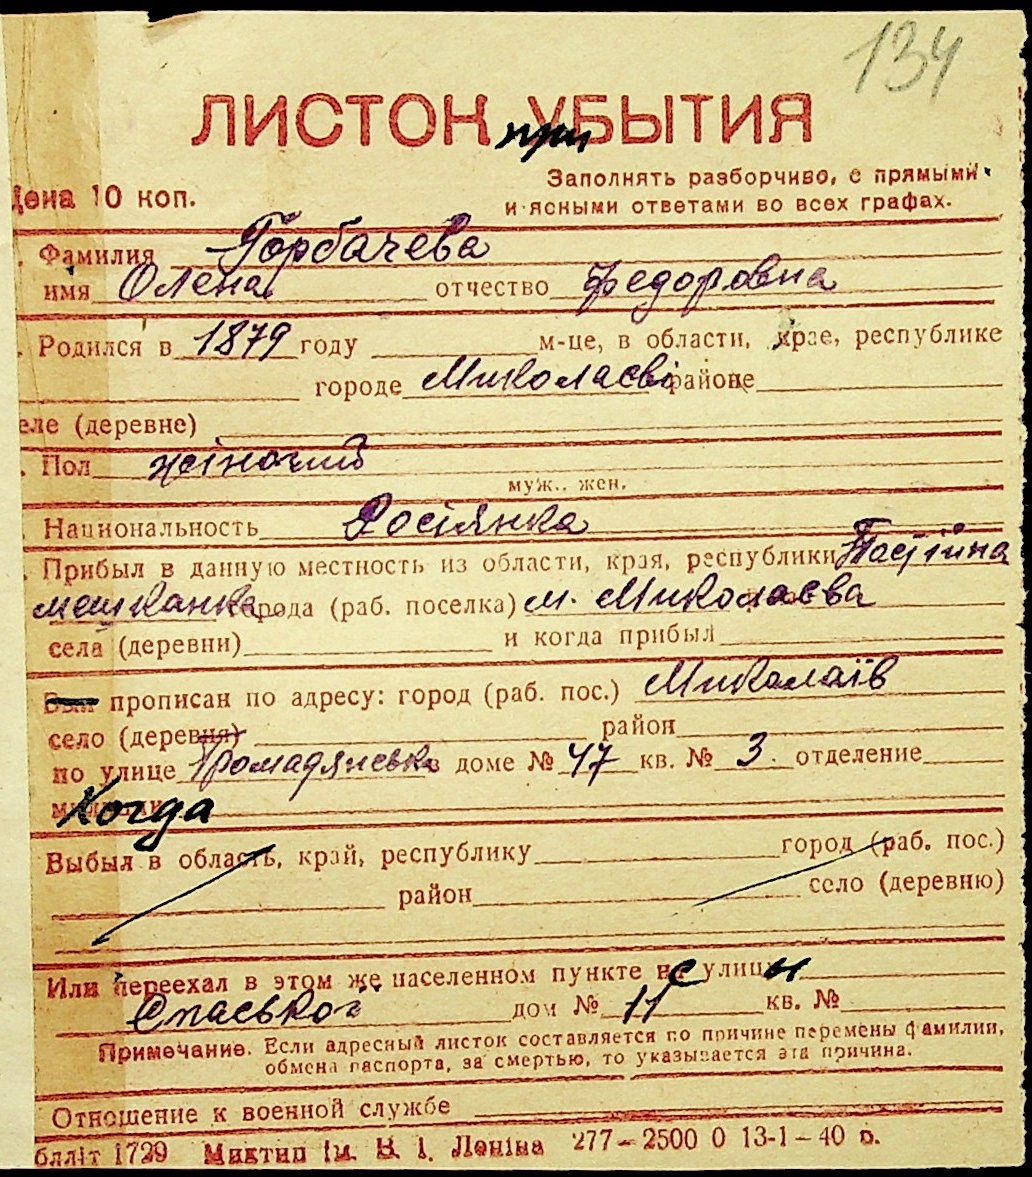 134
ЛИСТОК при УБЫТИЯ
Цена 10 коп.
Заполнять разборчиво, с прямыми
и ясными ответами во всех графах.
. Фамилия Горбачева
имя Олена отчество Федоровна
. Родился в 1879 году м-це, в области, крае, республике
городе Миколаєві районе
еле (деревне)
. Пол жіночий
муж.. жен.
. Национальность Росіянка
. Прибыл в данную местность из области, края, республики Постійна
мешканка города (раб. поселка) м. Миколаєва
села (деревни) и когда прибыл
Был прописан по адресу: город (раб. пос.) Миколаїв
село (деревня) район
по улице Громадянська в доме № 47 кв. № 3. отделение
милиции Когда
Выбыл в область, край, республику город (раб. пос.)
район село (деревню)
Или переехал в этом же населенном пункте с улицы
Спаської дом № 11 кв. №
Примечание. Если адресный листок составляется по причине перемены фамилии,
обмена паспорта, за смертью, то указывается эта причина.
Отношение к военной службе
бліт 1729 Миктип ім. В. І. Леніна 277–2500 0 13-1–40 р.